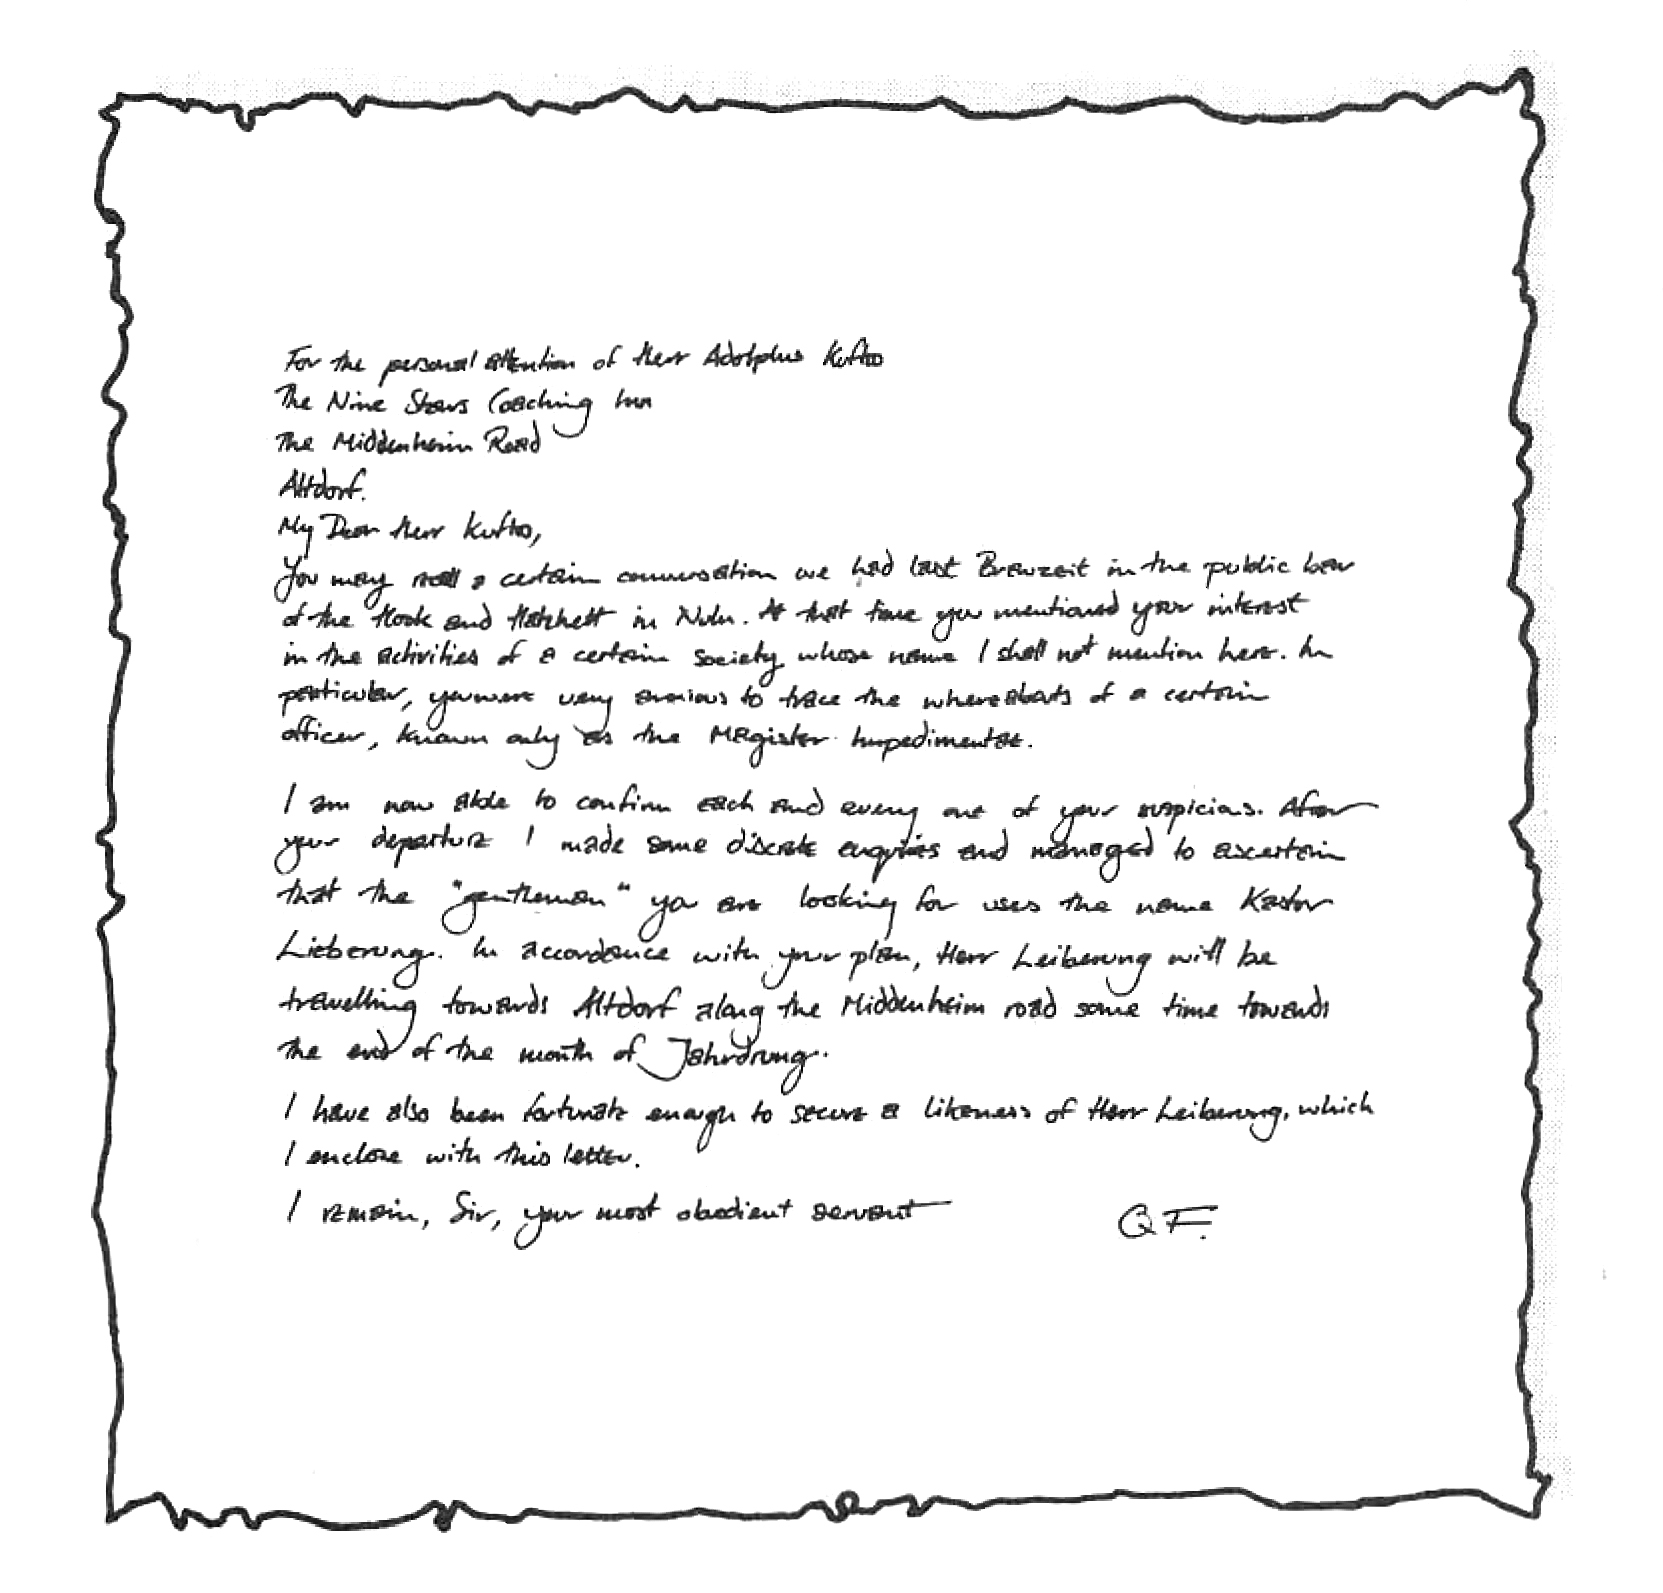 For the personal attention of Herr Adolphus Kuftos
The Nine Stars Coaching Inn
The Middenheim Road
Altdorf.
My Dear Herr Kuftos,
You may recall a certain conversation we had last Brewzeit in the public bar
of the Hook and Hatchett in Nuln. At that time you mentioned your interest
in the activities of a certain society whose name I shall not mention here. In
particular, you were very anxious to trace the whereabouts of a certain
officer, known only as the Magister Impedimentae.
I am now able to confirm each and every one of your suspicions. After
your departure I made some discrete enquiries and managed to ascertain
that the "gentleman" you are looking for uses the name Kastor
Lieberung. In accordance with your plan, Herr Leiberung will be
travelling towards Altdorf along the Middenheim road some time towards
the end of the month of Jahrdrung.
I have also been fortunate enough to secure a likeness of Herr Leiberung, which
I enclose with this letter.
I remain, Sir, your most obedient servant QF.